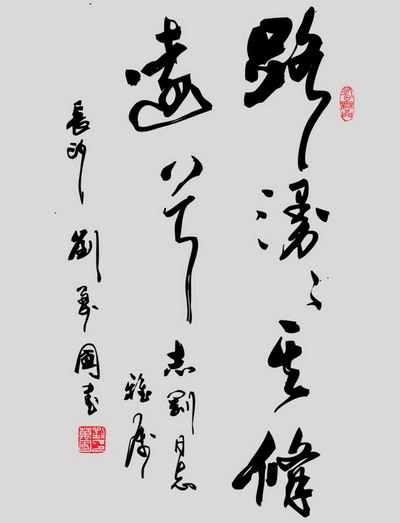 路漫々其修
遠兮
志剛同志
雅属
長沙 劉 國書